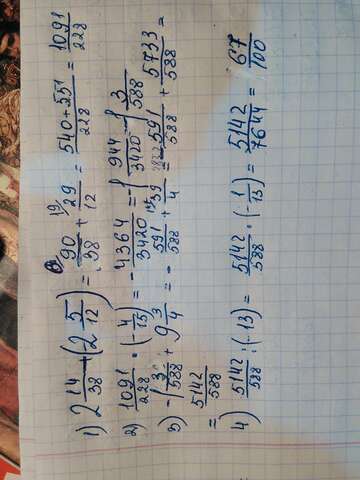 1) 2 14/38 + (2 5/12) = 90/38 + 29/12 = 540+551/228 = 1091/228
2) 1091/228 · (- 4/15) = - 4364/3420 = -1 944/3420 -1 3/588
3) -1 3/588 + 9 3/4 = - 591/588 + 39/4 = 591/588 + 5733/588 =
= 5142/588
4) 5142/588 : (-13) = 5142/588 · (- 1/13) = 5142/7644 = 67/100